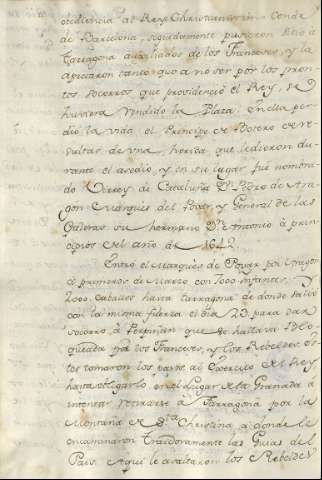 obediencia al Rey Christianissimo Conde
de Barcelona, seguidamente pusieron Sitio à
Tarragona auxiliados de los Franceses, y la
apretaron tanto que a no ser por los pron-
tos socorros que providenció el Rey, se
huviera rendido la Plaza. En ella per-
dió la vida el Principe de Botero de re-
sultas de una herida que le dieron du-
rante el asedio, y en su lugar fue nombra-
do Virrey de Cataluña Dn. Pedro de Ara-
gon Marques del Povar, y General de las
Galeras su hermano Dn. Antonio à prin-
cipios del año de 1642.
Entró el Marques de Povar por Aragon
à primeros de Marzo con 7000 Infantes, y
2000 Caballos hasta Tarragona de donde salió
con la misma fuerza el dia 23 para dar
socorro à Perpiñan que se hallava blo-
queada por los Franceses, y los Rebeldes, es-
tos tomaron los pasos al Exercito del Rey
hasta obligarlo, en el Lugar de la Granada à
intentar retirarse à Tarragona por la
Montaña de Sta. Christina, à donde le
encaminaron traidoramente las Guias del
Pais. Aqui le asaltaron los Rebeldes